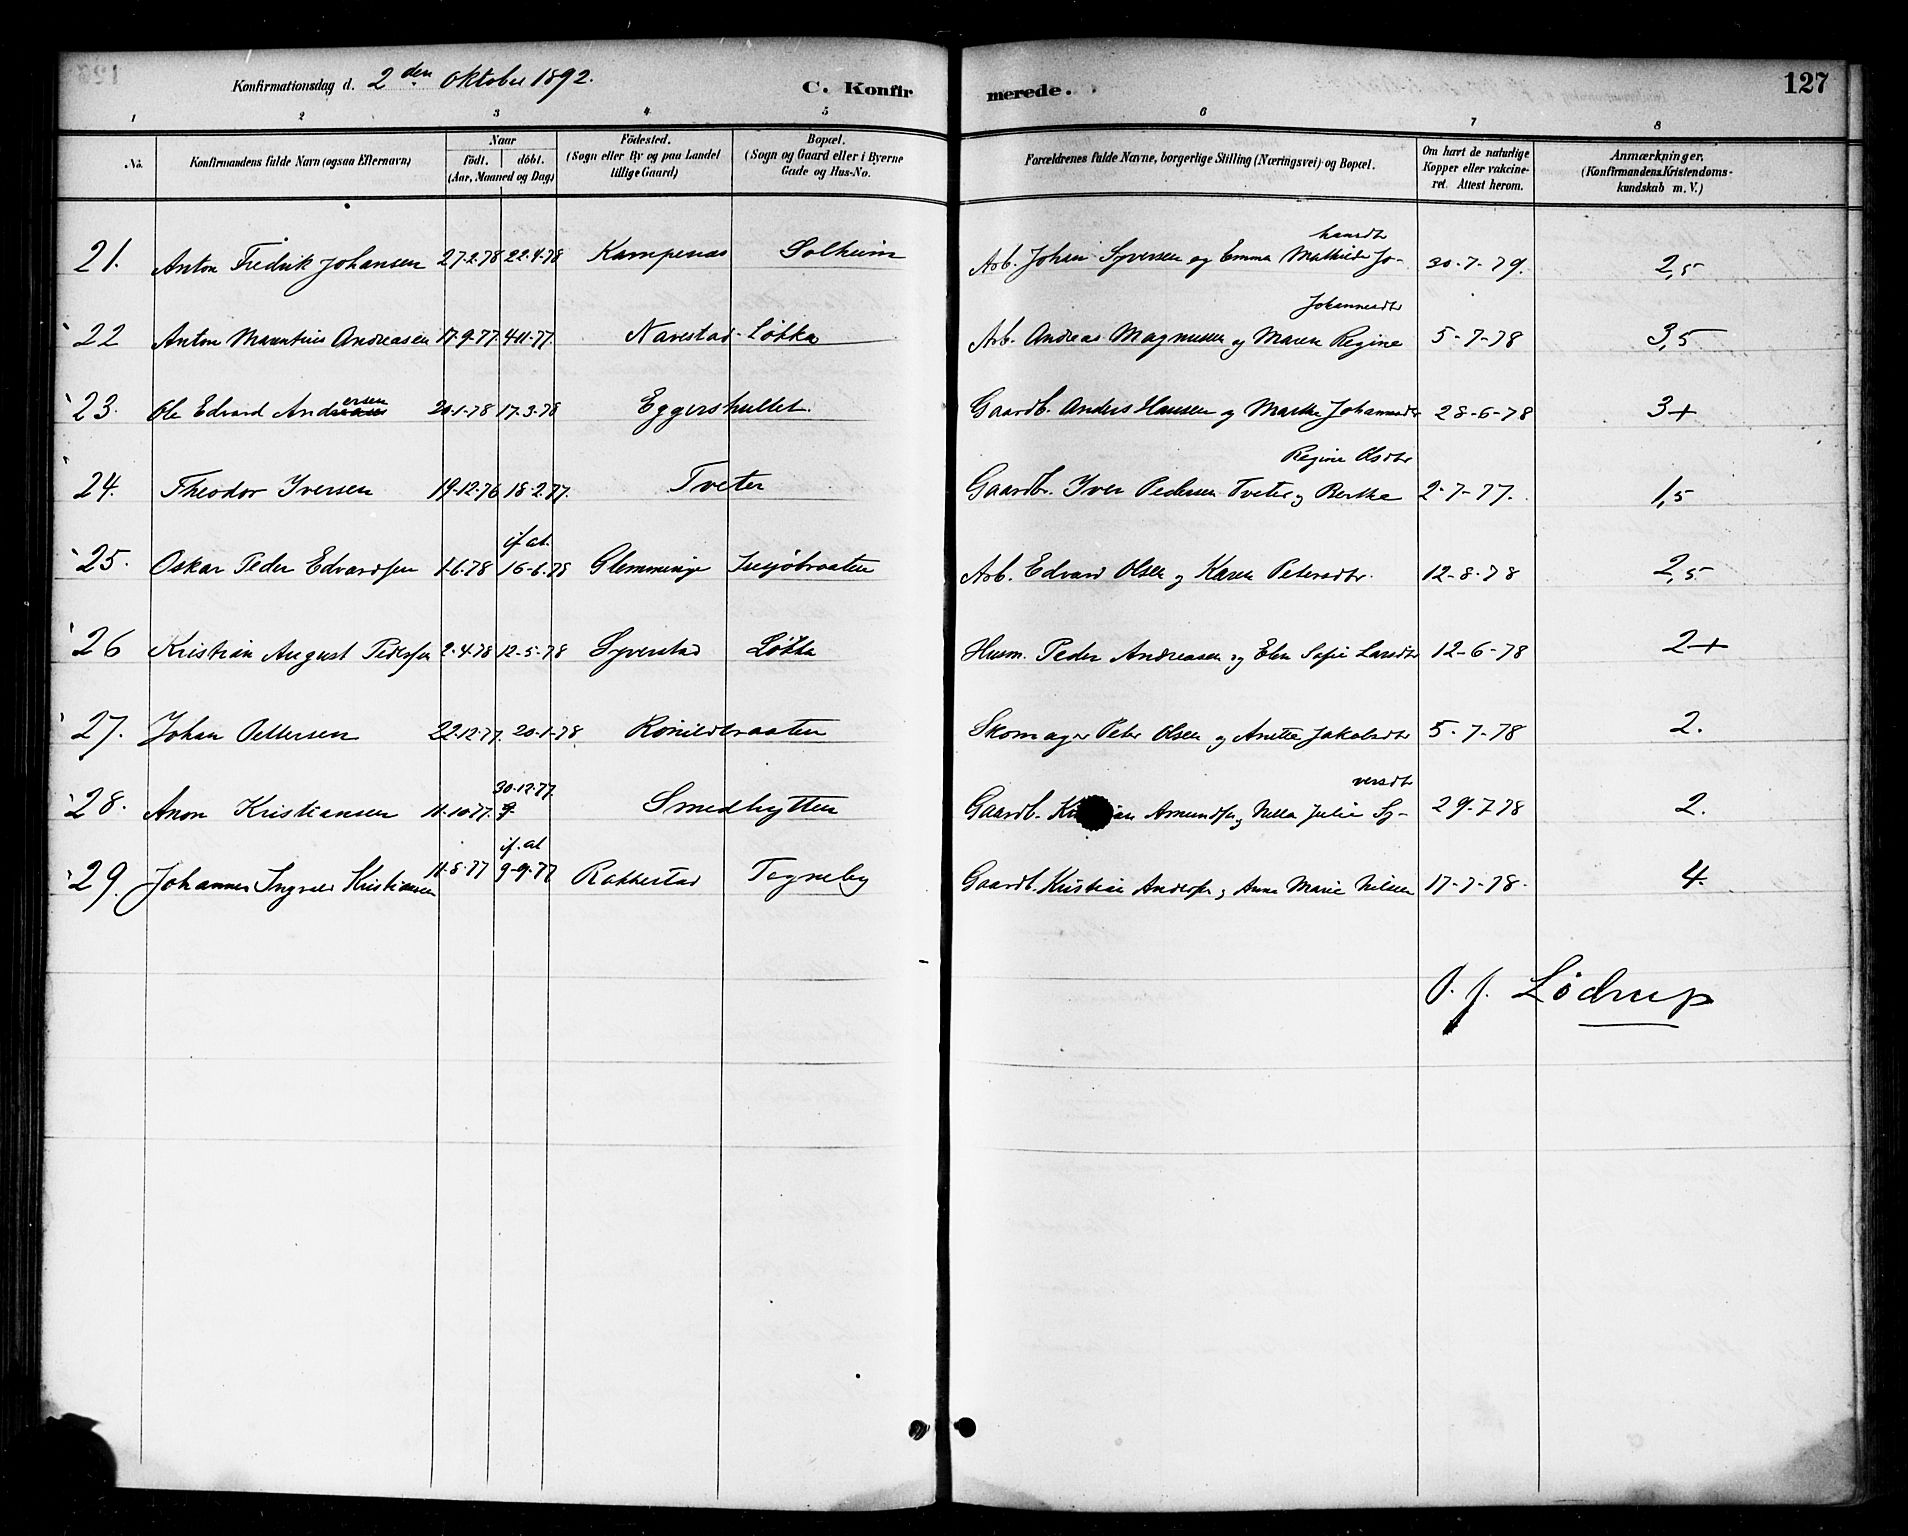 Konfirmationsdag d. 2den Oktober 1892.
C. Konfir
merede.
127
1 2 3 4 5 6 7 8
No.
Konfirmandens fulde Navn (ogsaa Efternavn)
Naar
født. døbt.
(Aar, Maaned og Dag)
Fødested.
(Sogn eller By og paa Landet
tillige Gaard)
Bopæl.
(Sogn og Gaard eller i Byerne
Gade og Hus-No.
Forældrenes fulde Navne, borgerlige Stilling (Næringsvei) og Bopæl.
Om havt de naturlige
Kopper eller vakcine-
ret. Attest herom.
Anmærkninger.
(Konfirmandens Kristendoms-
kundskab m. V.)
hansdtr
21. Anton Fredrik Johansen 27-2-78 22-4-78 Kampenas Solheim Arb. Johan Syversen og Emma Mathilde Jo- 30-7-79. 2,5
Johannesdtr
22 Anton Marentius Andreasen 17-9-77 4-11-77. Navestad-Løkka Arb. Andreas Magnusen og Maren Regine 5-7-78 3,5
23. Ole Edvard Andersen 20-1-78 17-3-78 Eggershullet. Gaardb. Anders Hansen og Marthe Johannesdtr 28-6-78 3+
Regine Olsdtr
24. Theodor Iversen 19-12-76 18-2-77. Tveter Gaardbr. Iver Pedersen Tveter og Berthe 2-7-77. 1,5
if. at.
25. Oskar Peder Edvardsen 1-6-78 16-6-78 Glemminge Arb. Edvard Olsen og Karen Petersdtr. 12-8-78 2,5
26 Kristian August Pedersen 2-4-78 12-5-78 Syverstad Løkka Husm. Peder Andreasen og Elen Sofie Larsdtr 12-6-78 2+
27. Johan Pettersen 22-12-77. 20-1-78 Rønildbraaten Skomager Peter Olsen og Anette Jakobsdtr 5-7-78 2.
30-12-77. versdtr
28. Anon Kristiansen 11-10-77. Smedhytten Gaardb. Amundsen og Nella Julie Sy- 29-7-78 2.
if. at
29. Johannes Ingvald Kristiansen 11-5-77 9-9-77 Rakkestad Togneby Gaardb. Kristian Andersen og Anna Marie Nilsen 17-7-78. 4.
O. J. Lødrup